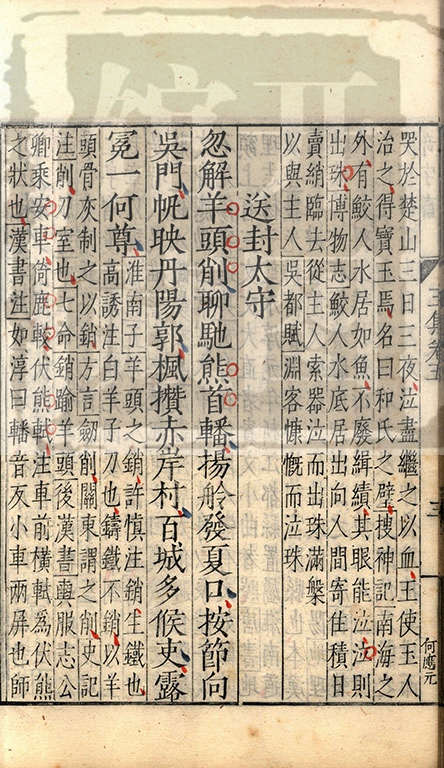 哭於楚山三日三夜泣盡繼之以血王使玉人
治之得寶玉焉名曰和氏之璧搜神記南海之
外有鮫人水居如魚不廢緝績其眼能泣泣則
出珠博物志鮫人水底居出向人間寄住積日
賣綃臨去從主人索器泣而出珠滿槃
以與主人吳都賦淵客慷慨而泣珠
送封太守
忽解羊頭削聊馳熊首轓揚舲發夏口按節向
吳門帆映丹陽郭楓攢赤岸村百城多候吏露
冕一何尊淮南子羊頭之銷許慎注銷生鐵也
高誘注白羊子刀也鑄鐵不銷以羊
頭骨灰制之以銷方言劒削關東謂之削史記
注削刀室也七命銷踰羊頭後漢書輿服志公
卿乘安車倚鹿較伏熊軾注車前橫軾為伏熊
之狀也漢書注如淳曰轓音反小車兩屏也師
何應元